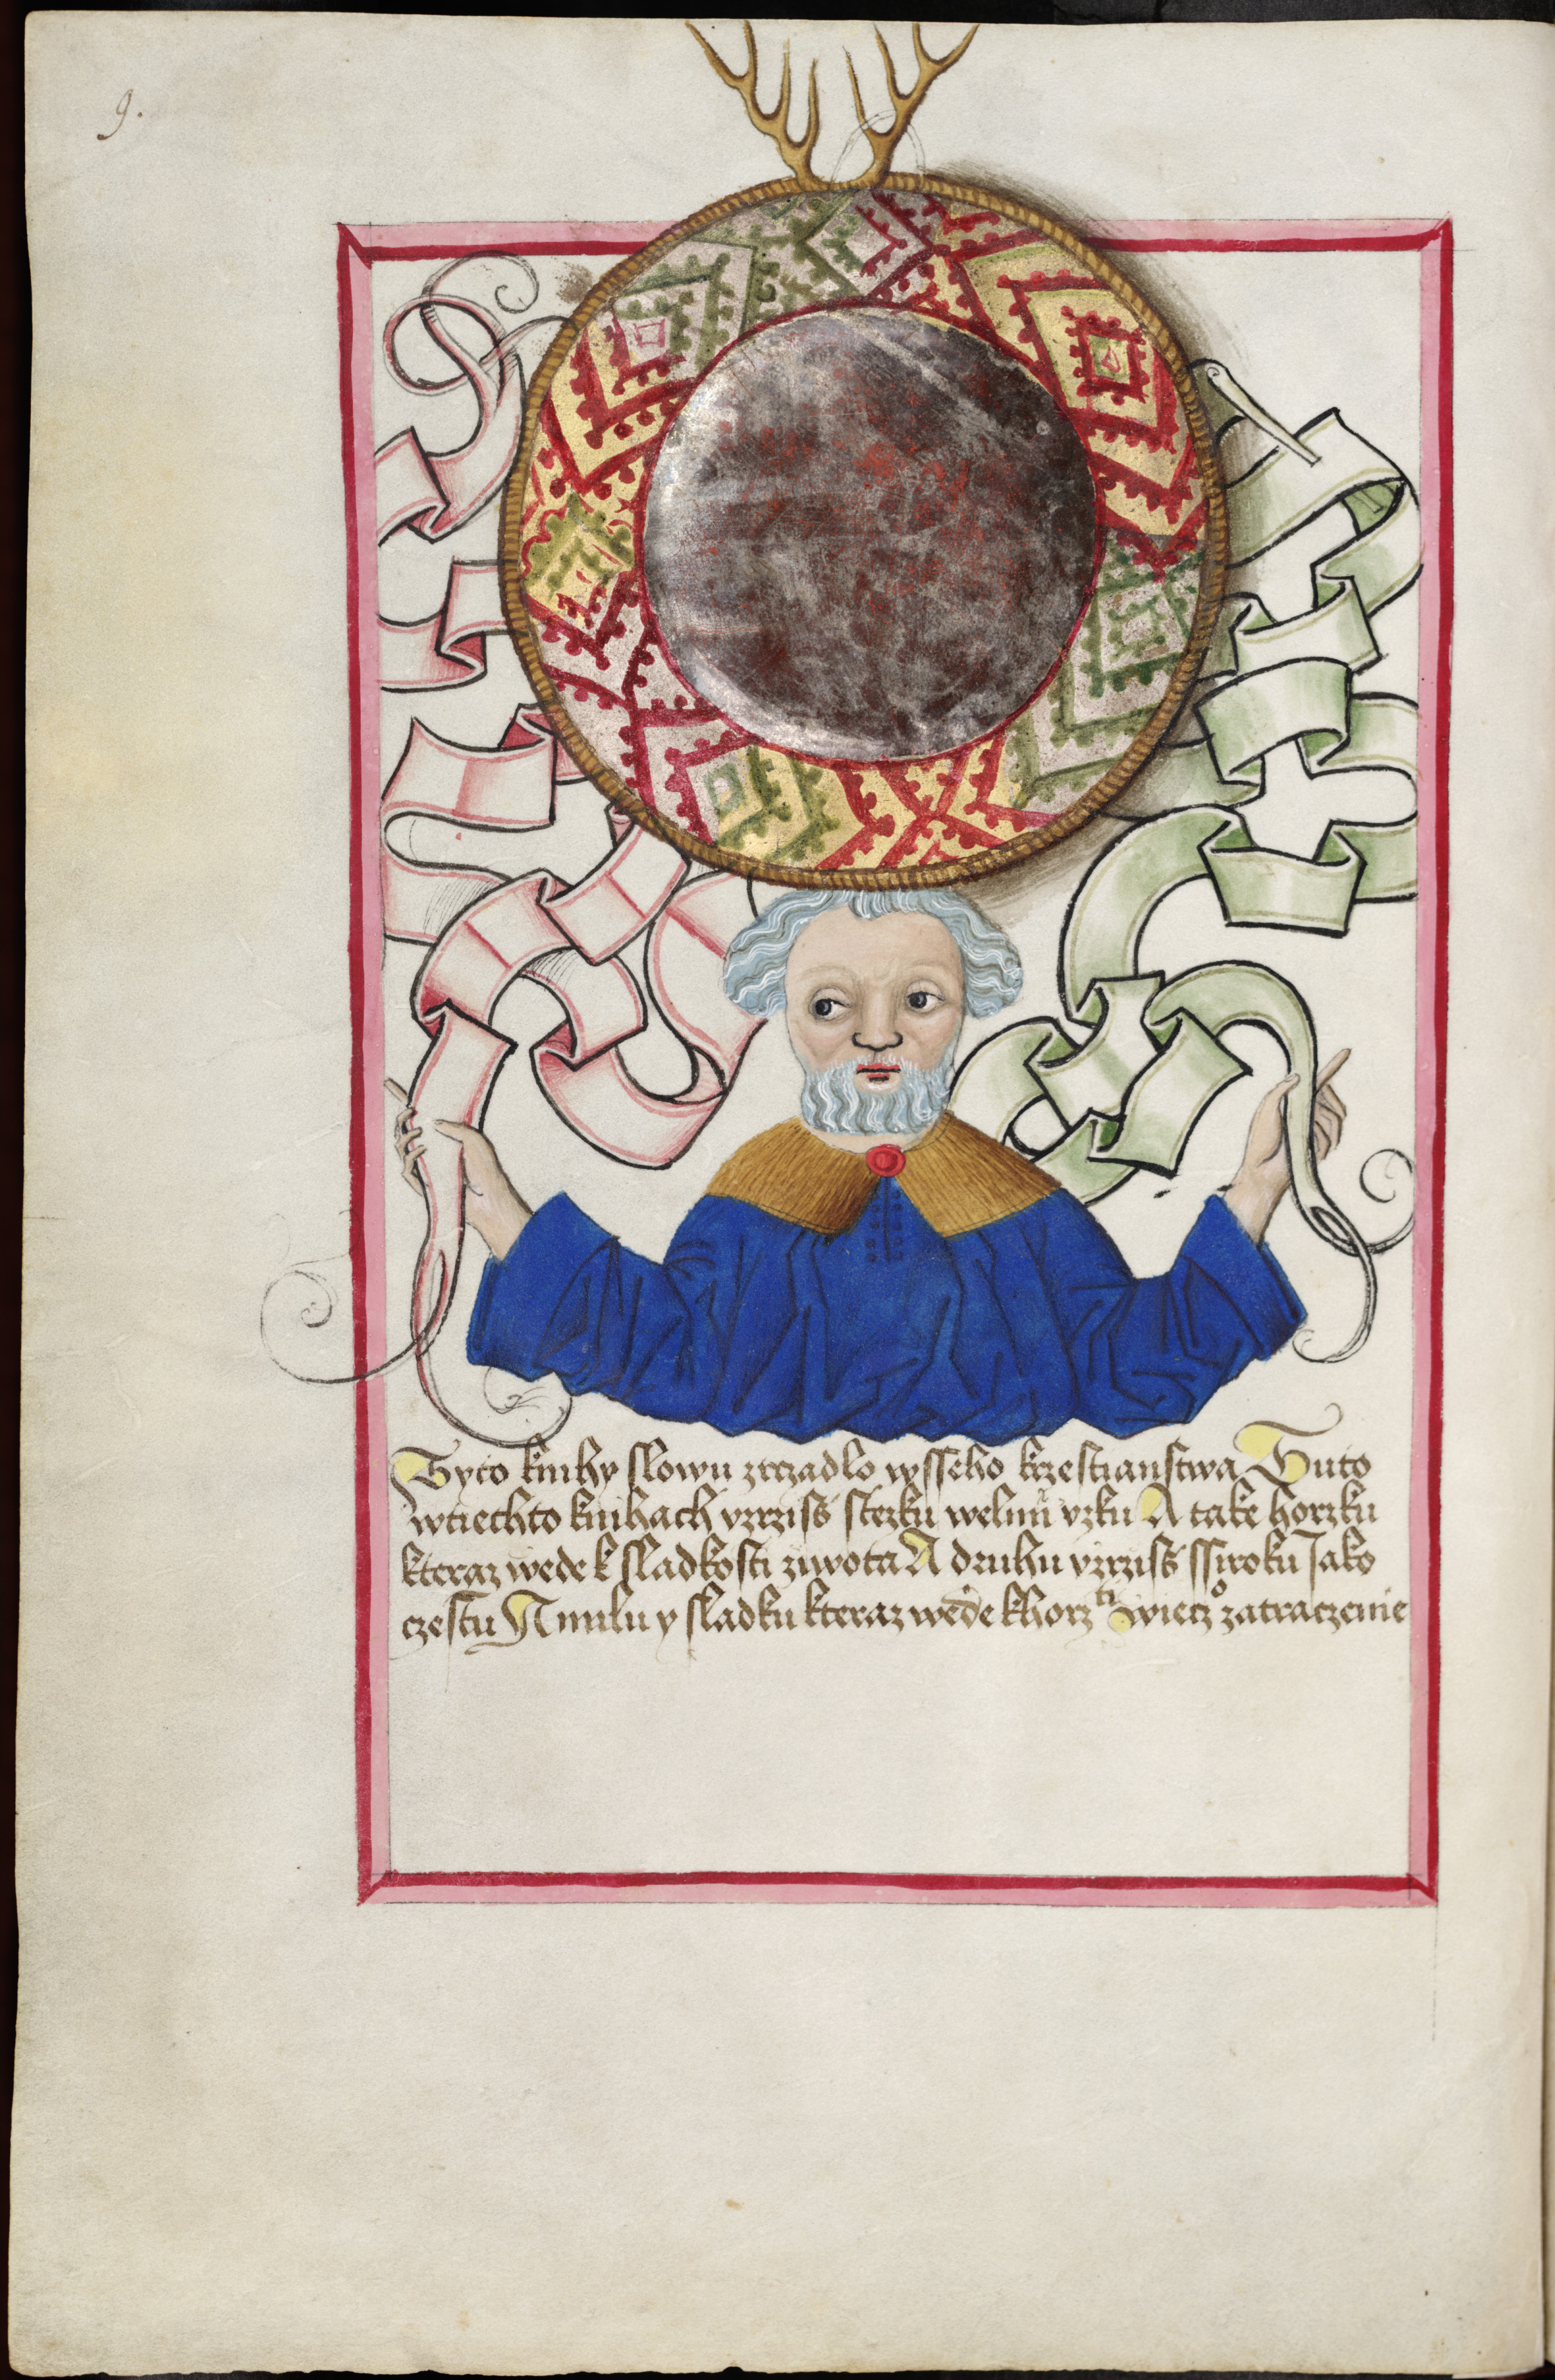 9.
Tyto knihy slowu zrczadlo wsseho krzestianstwa Tuto
wtiechto knihach vzrziss stezku welmi vzku A take horzku
kteraz wede k sladkosti ziwota A druhu vzrziss ssiroku Jako
czestu A milu y sladku kteraz wede khorzti wiecz° zatraczenie